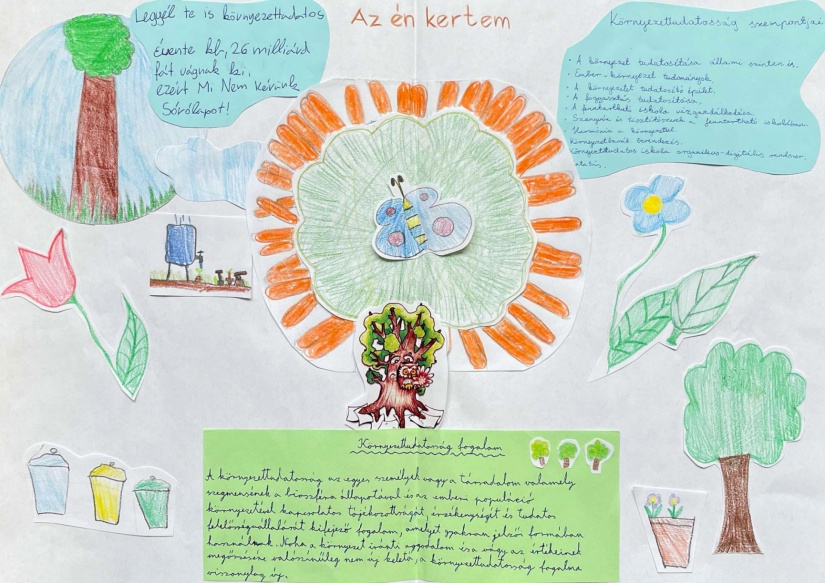 Az én kertem
Legyél te is környezettudatos
évente kb, 26 milliárd
fát vágnak ki,
ezért Mi Nem kérünk
Szórólapot!
Környezettudatosság szempontjai
• A környezet tudatosítása állami szinten is.
• Ember-környezet tudományok.
• A környezetet tudatosító épület.
• A fogyasztás tudatosítása.
• A fenntartható iskola vízgazdálkodása.
Szennyvíz és tisztítószerek a fenntartható iskolában.
Harmónia a környezettel.
Környezetbarát berendezés.
Környezettudatos iskola organikus-digitális rendszer.
Környezettudatosság fogalom
A környezettudatosság az egyes személyek vagy a társadalom valamely
szegmensének a bioszféra állapotával és az emberi populáció
környezetével kapcsolatos tájékozottságát, érzékenységét és tudatos
felelősségvállalását kifejező fogalom, amelyet gyakran jelzői formában
használnak. Noha a környezet iránti aggodalom és a vágy az értékeinek
megőrzésére valószínűleg nem új keletű, a környezettudatosság fogalma
viszonylag új.